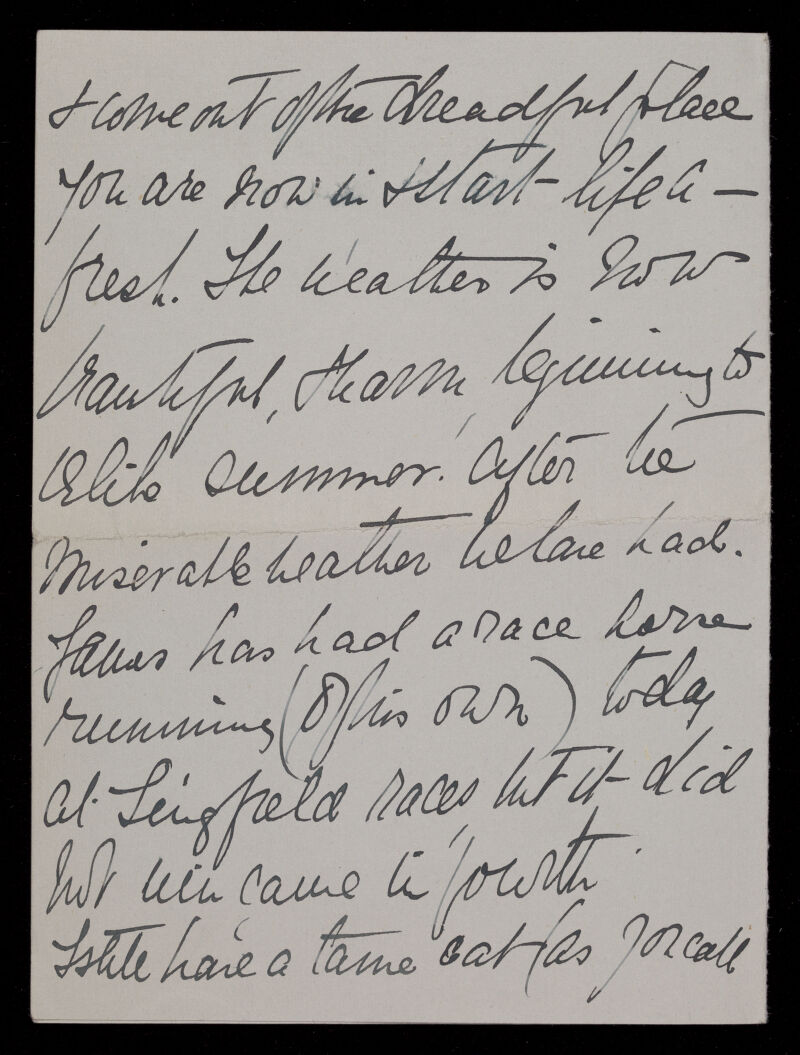 & come out of the dreadful place
you are now in & start life a-
fresh. The weather is now
beautiful, & warm, beginning to
be like summer. After the
miserable weather we have had.
James has had a race horse
running (of his own) today
at Lingfield races, but it did
not win, came in fourth.
I still have a tame cat (as you call